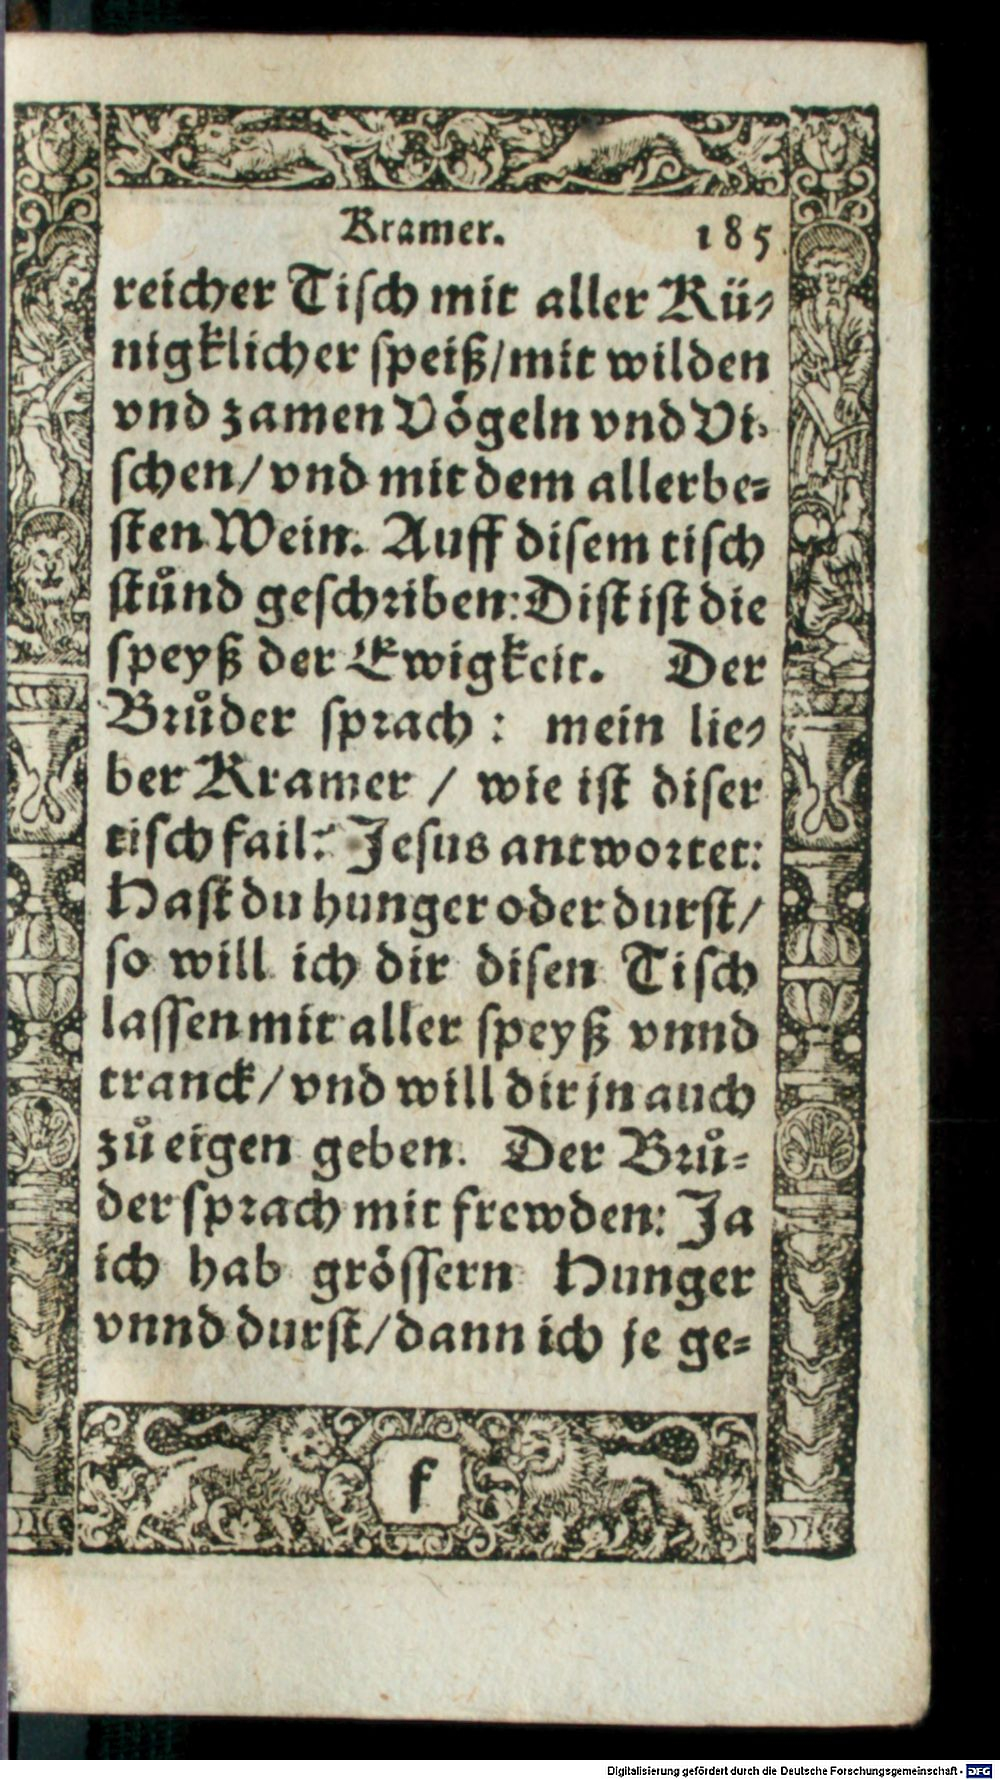 Kramer. 185
reicher Tisch mit aller Kü⸗
nigklicher speiß/mit wilden
vnd zamen Vögeln vnd Vi⸗
schen/vnd mit dem allerbe⸗
sten Wein. Auff disem tisch
stůnd geschriben: Dist ist die
speyß der Ewigkeit. Der
Brůder sprach: mein lie⸗
ber Kramer / wie ist diser
tisch fail? Jesus antwortet:
Hast du hunger oder durst/
so will ich dir disen Tisch
lassen mit aller speyß vnnd
tranck/vnd will dir jn auch
zů eigen geben. Der Brů⸗
der sprach mit frewden: Ja
ich hab grössern Hunger
vnnd durst/dann ich je ge⸗
f
Digitalisierung gefördert durch die Deutsche Forschungsgemeinschaft - DFG